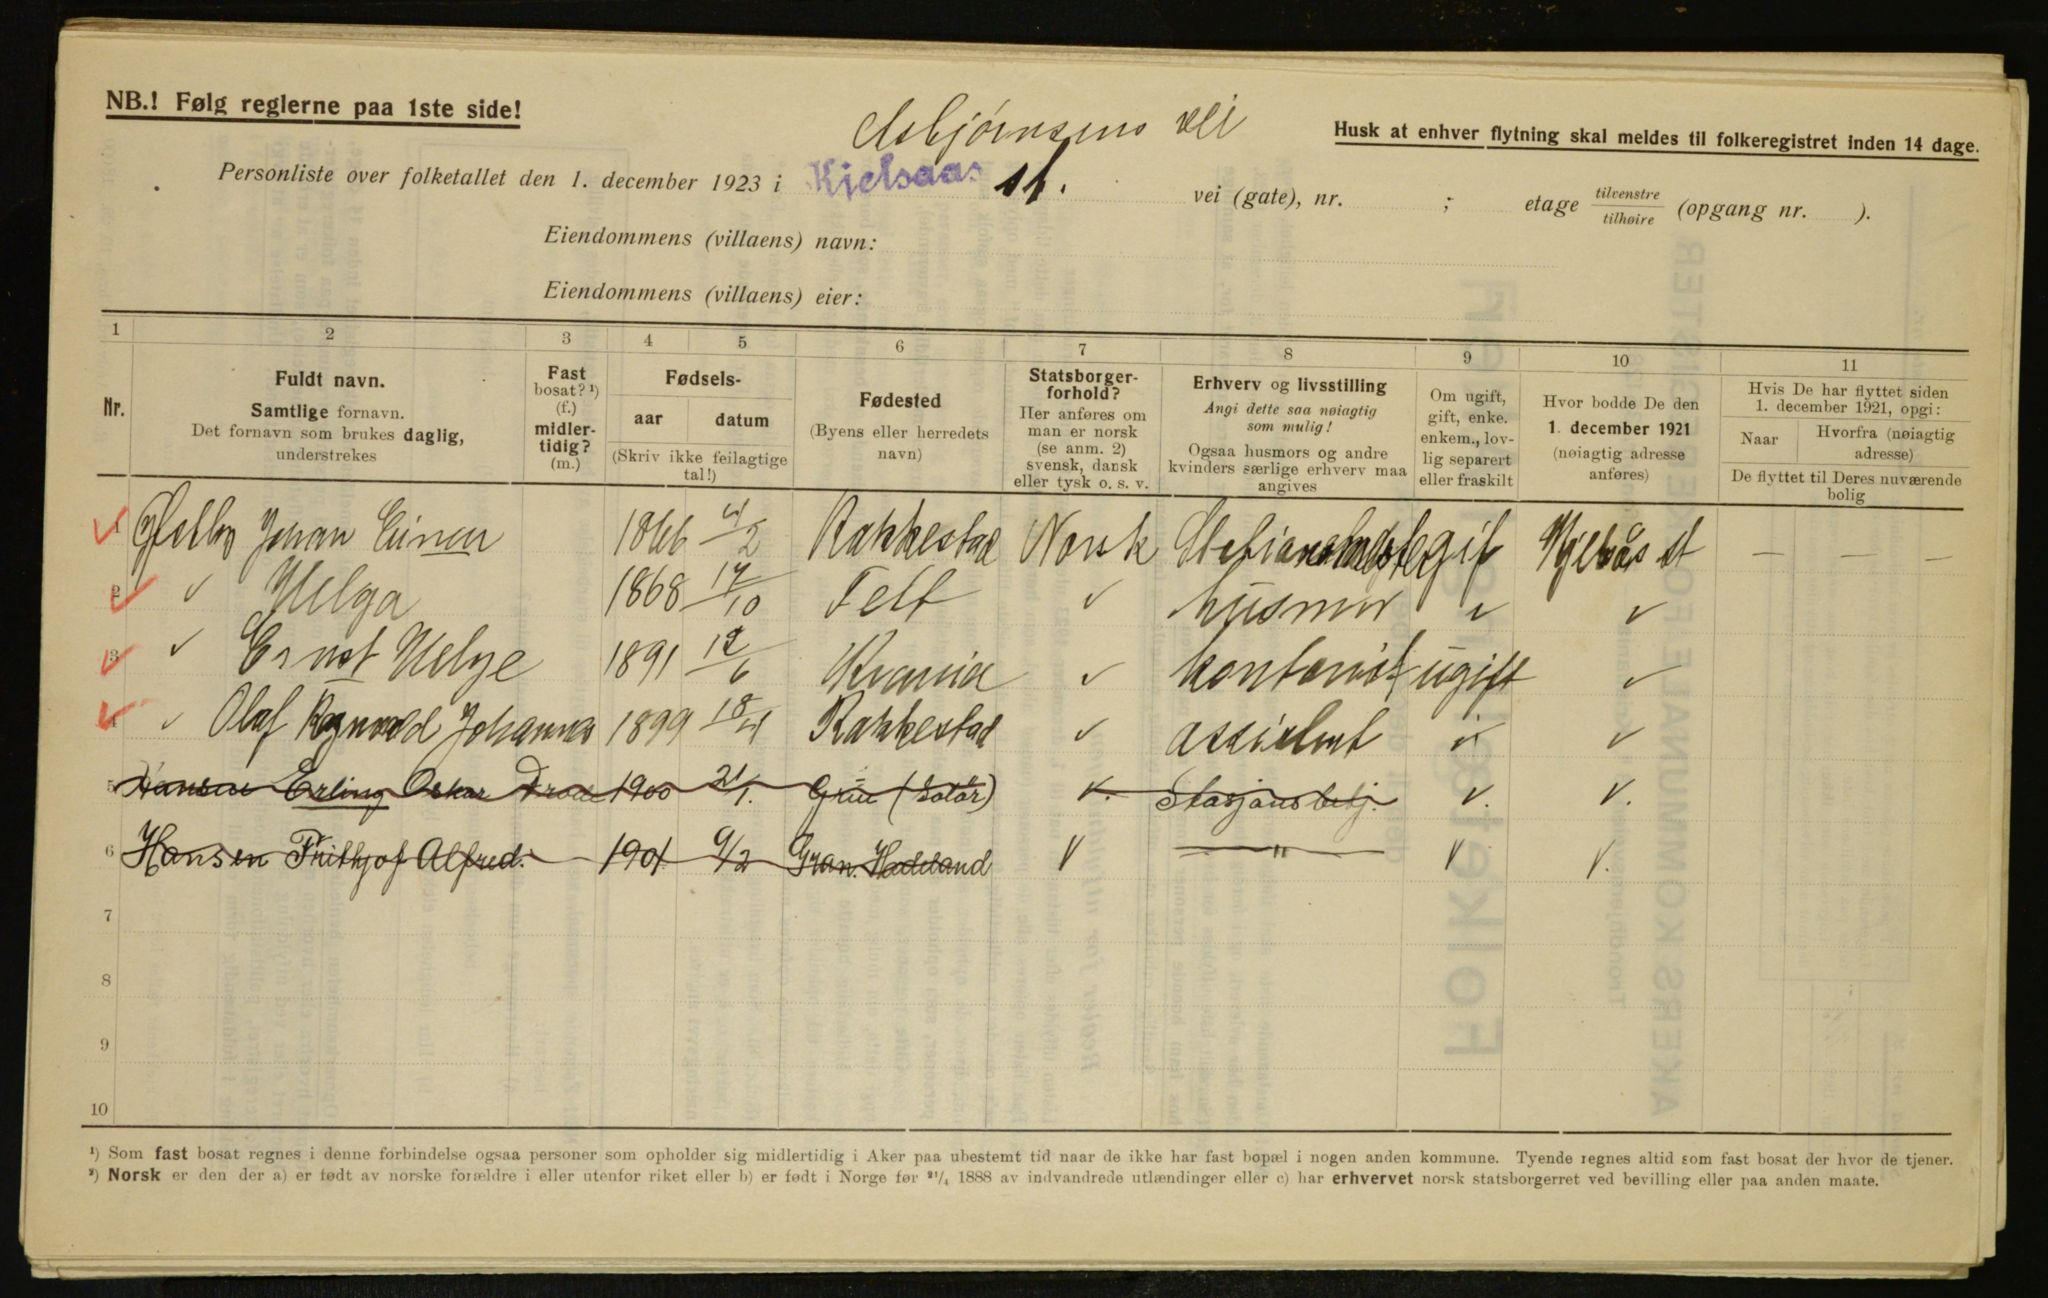 NB.! Følg reglerne paa 1ste side!
Asbjørnsens vei
Husk at enhver flytning skal meldes til folkeregistret inden 14 dage.
Personliste over folketallet den 1. december 1923 i Kjelsaas st. vei (gate), nr. ; etage tilvenstre tilhøire (opgang nr. ).
Eiendommens (villaens) navn:
Eiendommens (villaens) eier:
1 2 3 4 5 6 7 8 9 10 11
Nr.
Fuldt navn.
Samtlige fornavn.
Det fornavn som brukes daglig,
understrekes
Fast
bosat? ¹)
(f.)
midler-
tidig?
(m.)
Fødsels-
aar datum
(Skriv ikke feilagtige
tal!)
Fødested
(Byens eller herredets
navn)
Statsborger-
forhold?
Her anføres om
man er norsk
(se anm. 2)
svensk, dansk
eller tysk o. s. v.
Erhverv og livsstilling
Angi dette saa nøiagtig
som mulig!
Ogsaa husmors og andre
kvinders særlige erhverv maa
angives
Om ugift,
gift, enke.
enkem., lov-
lig separert
eller fraskilt
Hvor bodde De den
1. december 1921
(nøiagtig adresse
anføres)
Hvis De har flyttet siden
1. december 1921, opgi:
Naar Hvorfra (nøiagtig
adresse)
De flyttet til Deres nuværende
bolig
1 Johan Einar 1866 /2 Rakkestad Norsk gift st — — —
2 " Helga 1868 17/10 " husmor " "
3 " Ernst Helge 1891 /6 Krania " kontorist ugift "
4 " Olaf Johannes 1899 18/ Rakkestad " assistent " "
5 Hansen Erling Oskar Frode 1900 21/1. Grue (Solør) " Stasjonsbetj. " "
6 Hansen Frithjof Alfred. 1901 9/2 Gran. Hadeland " " " "
7
8
9
10
¹) Som fast bosat regnes i denne forbindelse ogsaa personer som opholder sig midlertidig i Aker paa ubestemt tid naar de ikke har fast bopæl i nogen anden kommune. Tyende regnes altid som fast bosat der hvor de tjener.
²) Norsk er den der a) er født av norske forældre i eller utenfor riket eller b) er født i Norge før ²¹/₄ 1888 av indvandrede utlændinger eller c) har erhvervet norsk statsborgerret ved bevilling eller paa anden maate.